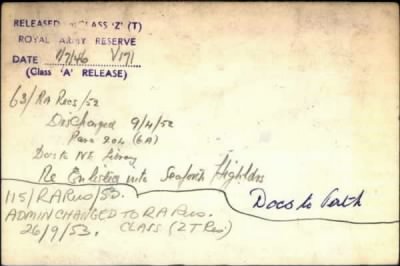 RELEASED CLASS 'Z' (T)
ROYAL ARMY RESERVE
DATE 1/7/46 V171
(Class 'A' RELEASE)
63/RA Recs/52
Discharged 9/4/52
Para 204 (6A)
Docs to NE Library
Re Enlisted into Seaforth Highldrs
115/RA Recs/53.
Docs to Perth
ADMIN CHANGED TO RA Recs.
26/9/53. CLASS (Z T Res)